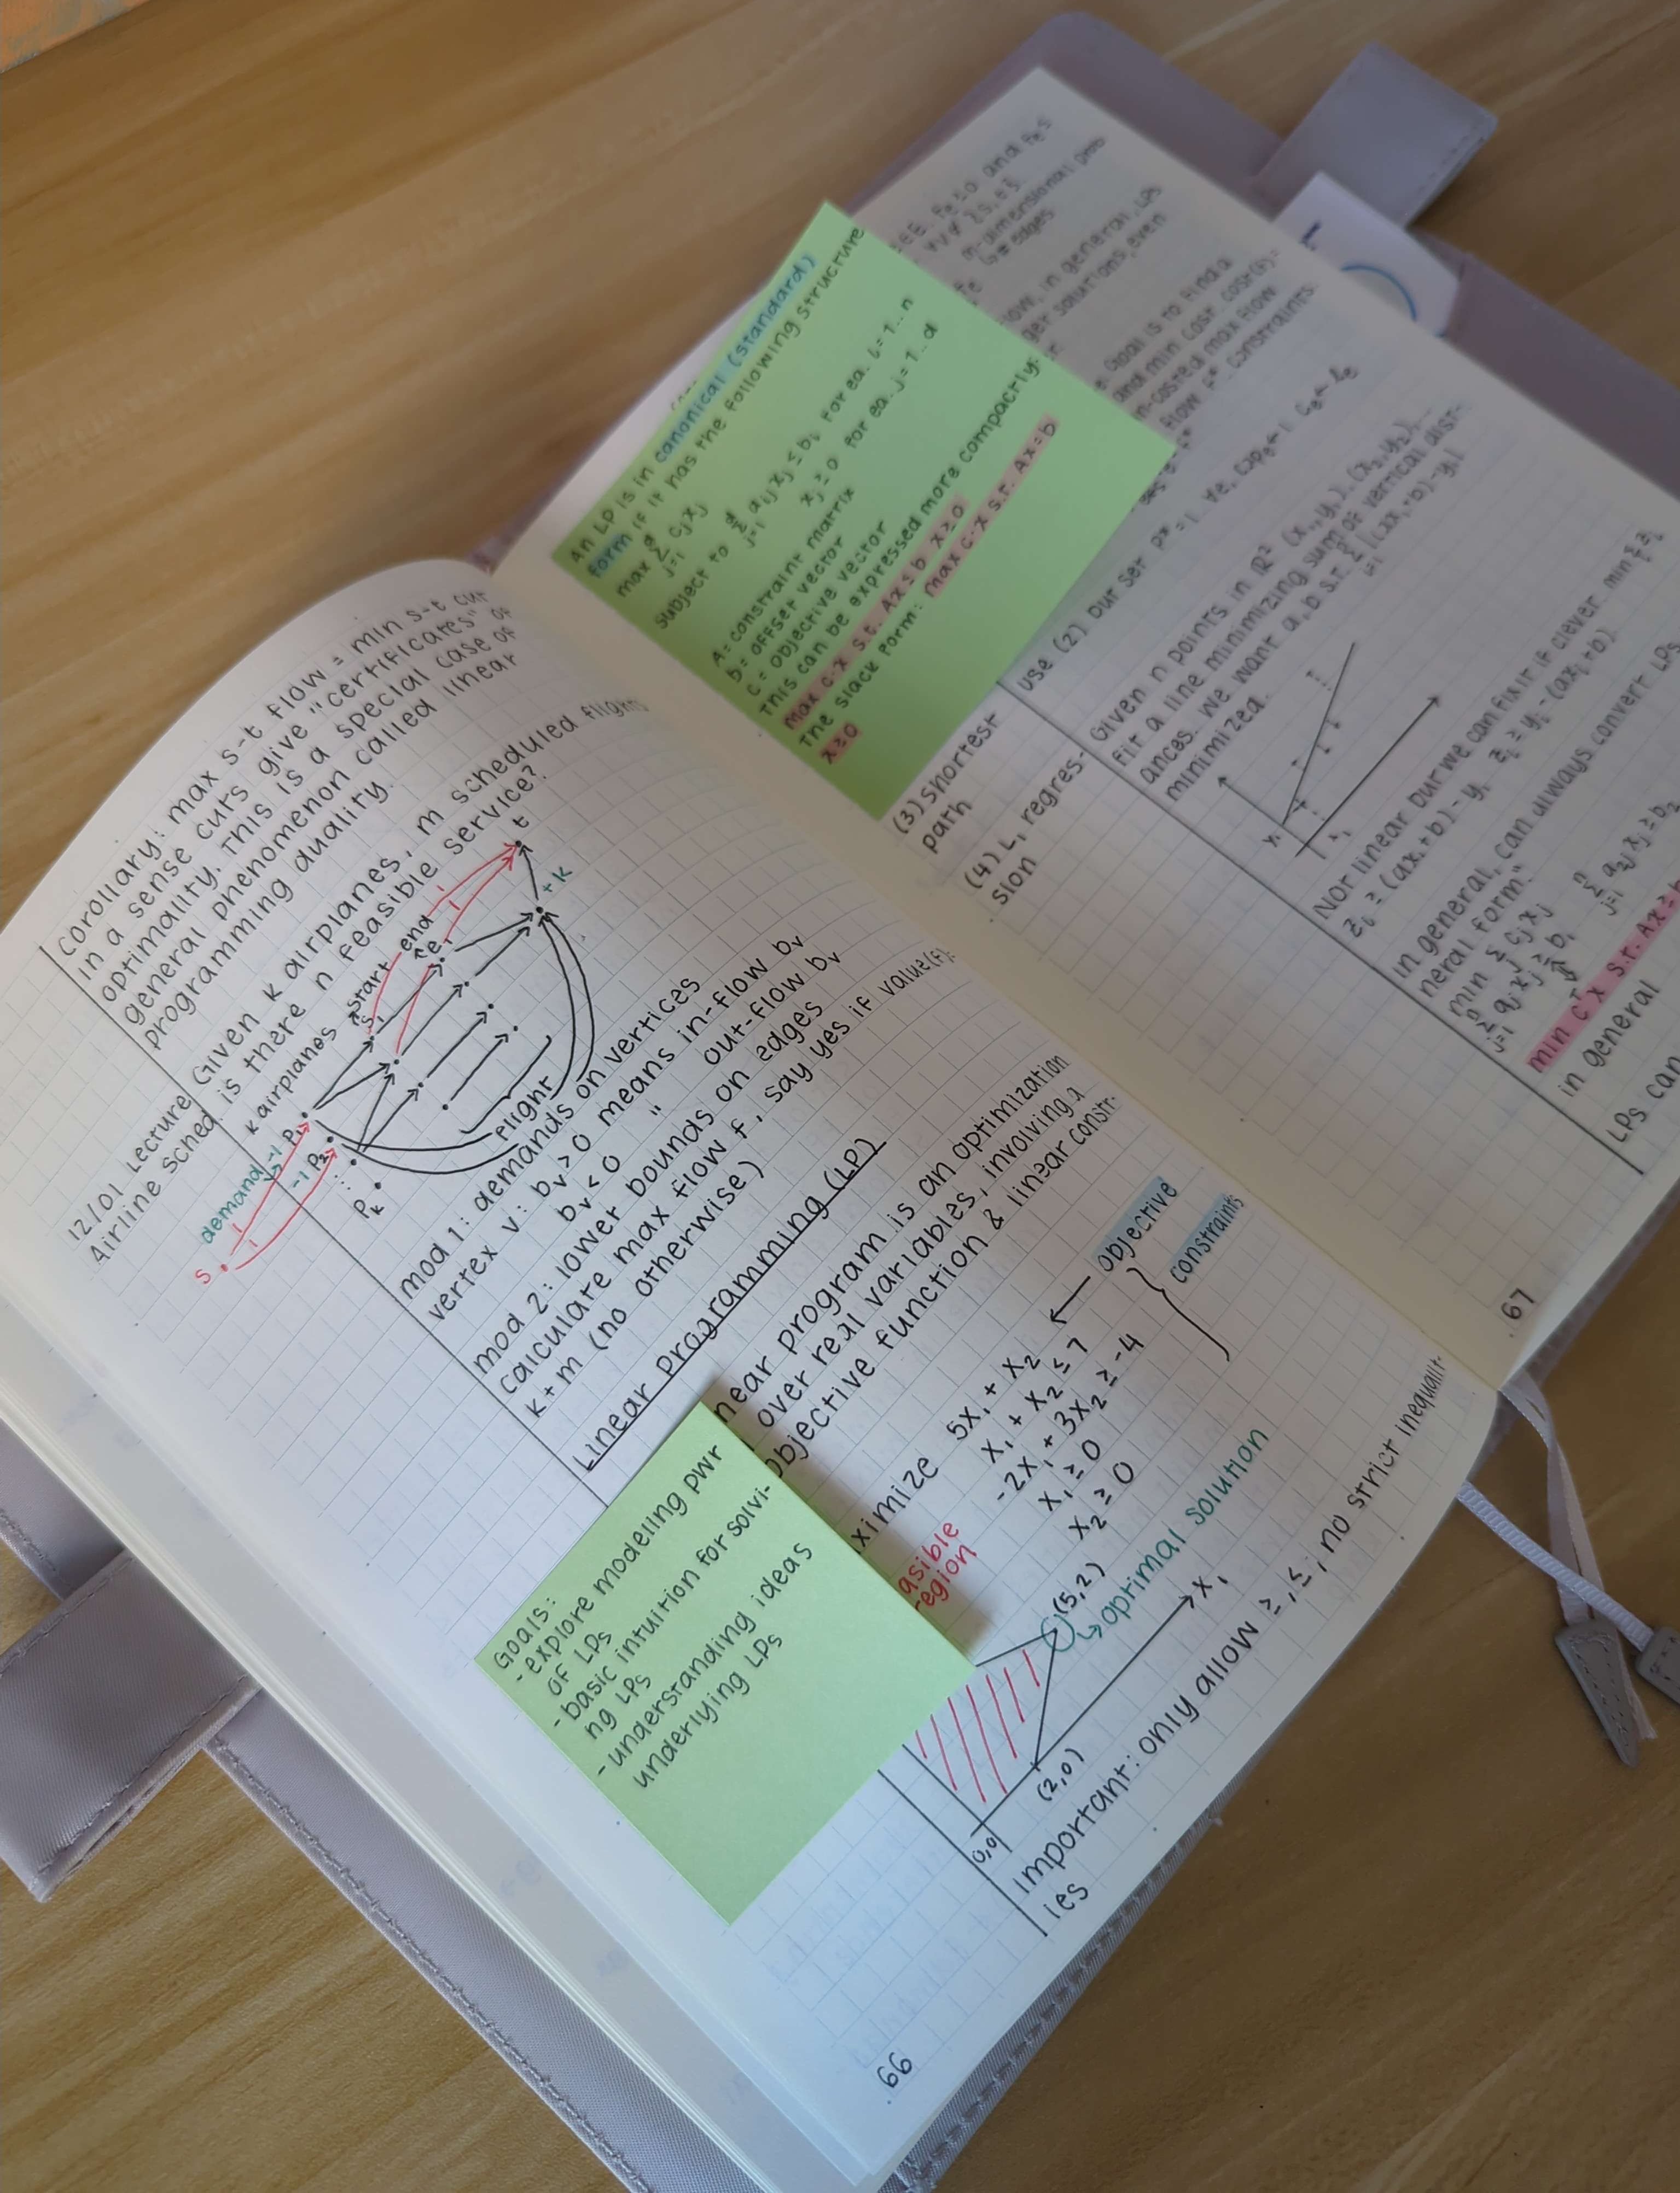 Corollary: max s-t flow = min s-t cut
in a sense cuts give "certificates" of
optimality. This is a special case of
general phenomenon called linear
programming duality.
12/01 Lecture
Airline sched.
Given k airplanes, m scheduled flights
is there n feasible service?
k airplanes
start
end
t
+k
s₁
e₁
1
1
demand
-1 P₁
-1 P₂
⋮
Pₖ
s
1
1
Flight
mod 1: demands on vertices
vertex v: bᵥ > 0 means in-flow bᵥ
bᵥ < 0 " out-flow bᵥ
mod 2: lower bounds on edges
calculate max flow f, say yes if value(f)
k+m (no otherwise)
Linear Programming (LP)
near program is an optimization
over real variables, involving a
objective function & linear constr.
ximize 5x₁ + x₂ ← objective
x₁ + x₂ ≤ 7
-2x₁ + 3x₂ ≥ -4
x₁ ≥ 0
x₂ ≥ 0
constraints
asible
region
(5,2)
↳ optimal solution
x₁
(2,0)
0,0
Goals:
- explore modelling pwr
of LPs
- basic intuition for solvi-
ng LPs
- understanding ideas
underlying LPs
Important: only allow ≥, ≤, no strict inequalit-
ies
66
An LP is in canonical (standard)
form if it has the following structure
max Σ cⱼxⱼ
j=1
subject to Σ aᵢⱼxⱼ ≤ bᵢ for ea. i=1..n
j=1
xⱼ ≥ 0 for ea. j=1..d
A = constraint matrix
b = offset vector
c = objective vector
This can be expressed more compactly:
max c·x s.t. Ax ≤ b x ≥ 0
The slack form: max c·x s.t. Ax = b
x ≥ 0
m-dimensional prob
edges
in general, LPs
solutions, even
Goal is to find a
and min cost
max flow
constraints:
(3) Shortest
path
use (2) but set
(4) L₁ regres-
sion
Given n points in ℝ² (x₁,y₁), (x₂,y₂),...
fit a line minimizing sum of vertical dist-
ances. We want a,b s.t. Σ |(axᵢ+b)-yᵢ|
i=1
minimized.
y₁
x₁
Not linear but we can fix it if clever min Σ zᵢ
zᵢ ≥ (axᵢ+b)-yᵢ zᵢ ≥ yᵢ-(axᵢ+b)
In general, can always convert LPs
neral form":
min Σ cⱼxⱼ
Σ aⱼxⱼ ≥ b₁
j=1
Σ a₂ⱼxⱼ ≥ b₂
j=1
min cᵀx s.t. Ax ≥ b
in general
LPs can
67